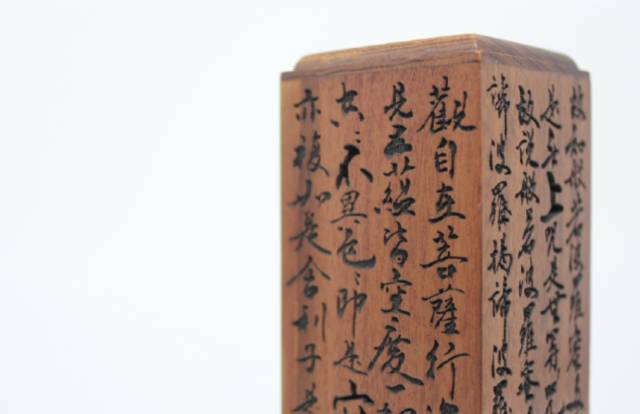 觀自在菩薩行
見五蘊皆空度一切
空〻不異色〻即是空
亦複如是舍利子是
故知般若波羅蜜多
是无上咒是无等
故說般若波羅蜜
諦波羅揭諦波羅